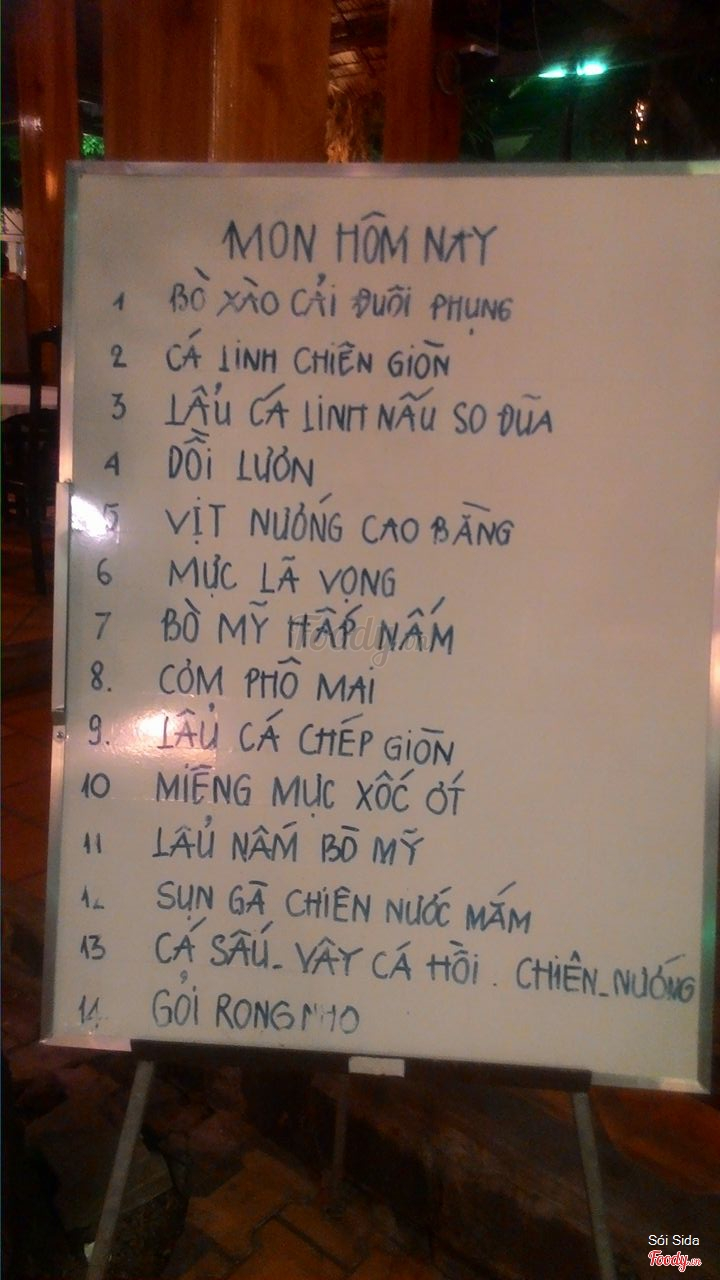 MON HÔM NAY
1 BÒ XÀO CẢI ĐUÔI PHỤNG
2 CÁ LINH CHIÊN GIÒN
3 LẨU CÁ LINH NẤU SO ĐŨA
4 DỒI LƯƠN
5 VỊT NƯỚNG CAO BẰNG
6 MỰC LÃ VỌNG
7 BÒ MỸ HẤP NẤM
8. CƠM PHÔ MAI
9. LẨU CÁ CHÉP GIÒN
10 MIỆNG MỰC XỐC ỚT
11 LẨU NẤM BÒ MỸ
12 SỤN GÀ CHIÊN NƯỚC MẮM
13 CÁ SẤU - VÂY CÁ HỒI . CHIÊN - NƯỚNG
14. GỎI RONG NHO
Foody.vn
Sói Sida
Foody.vn